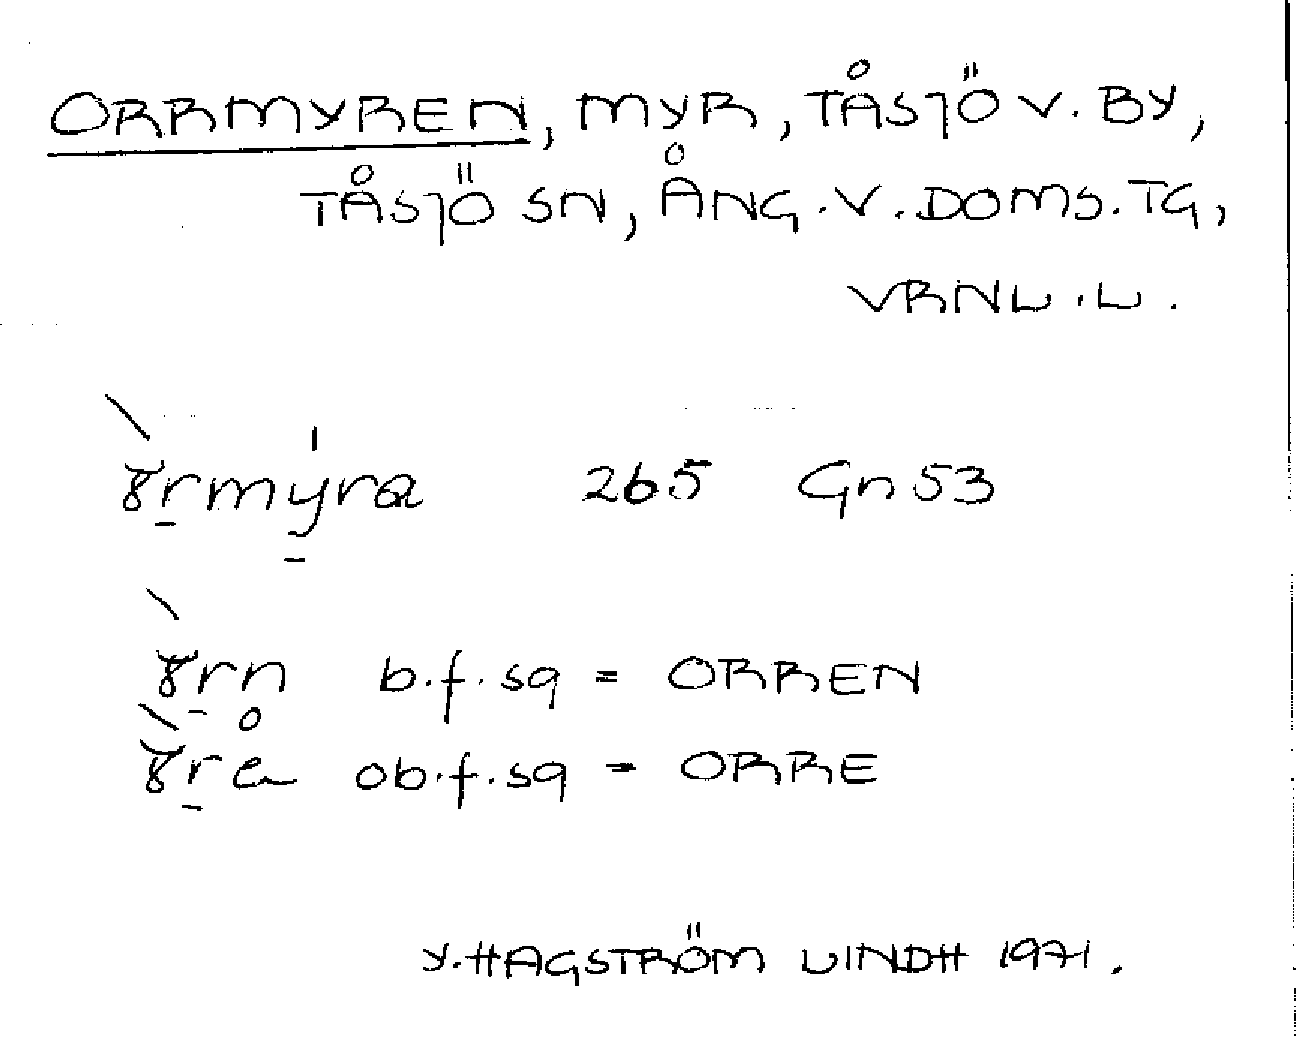 ORRMYREN, MYR, TÅSJÖ V. BY,
TÅSJÖ SN, ÅNG. V. DOMS. TG,
VRNL. L.
265 Gn 53
b.f. sg = ORREN
ob.f. sg = ORRE
Y. HAGSTRÖM LINDH 1971.